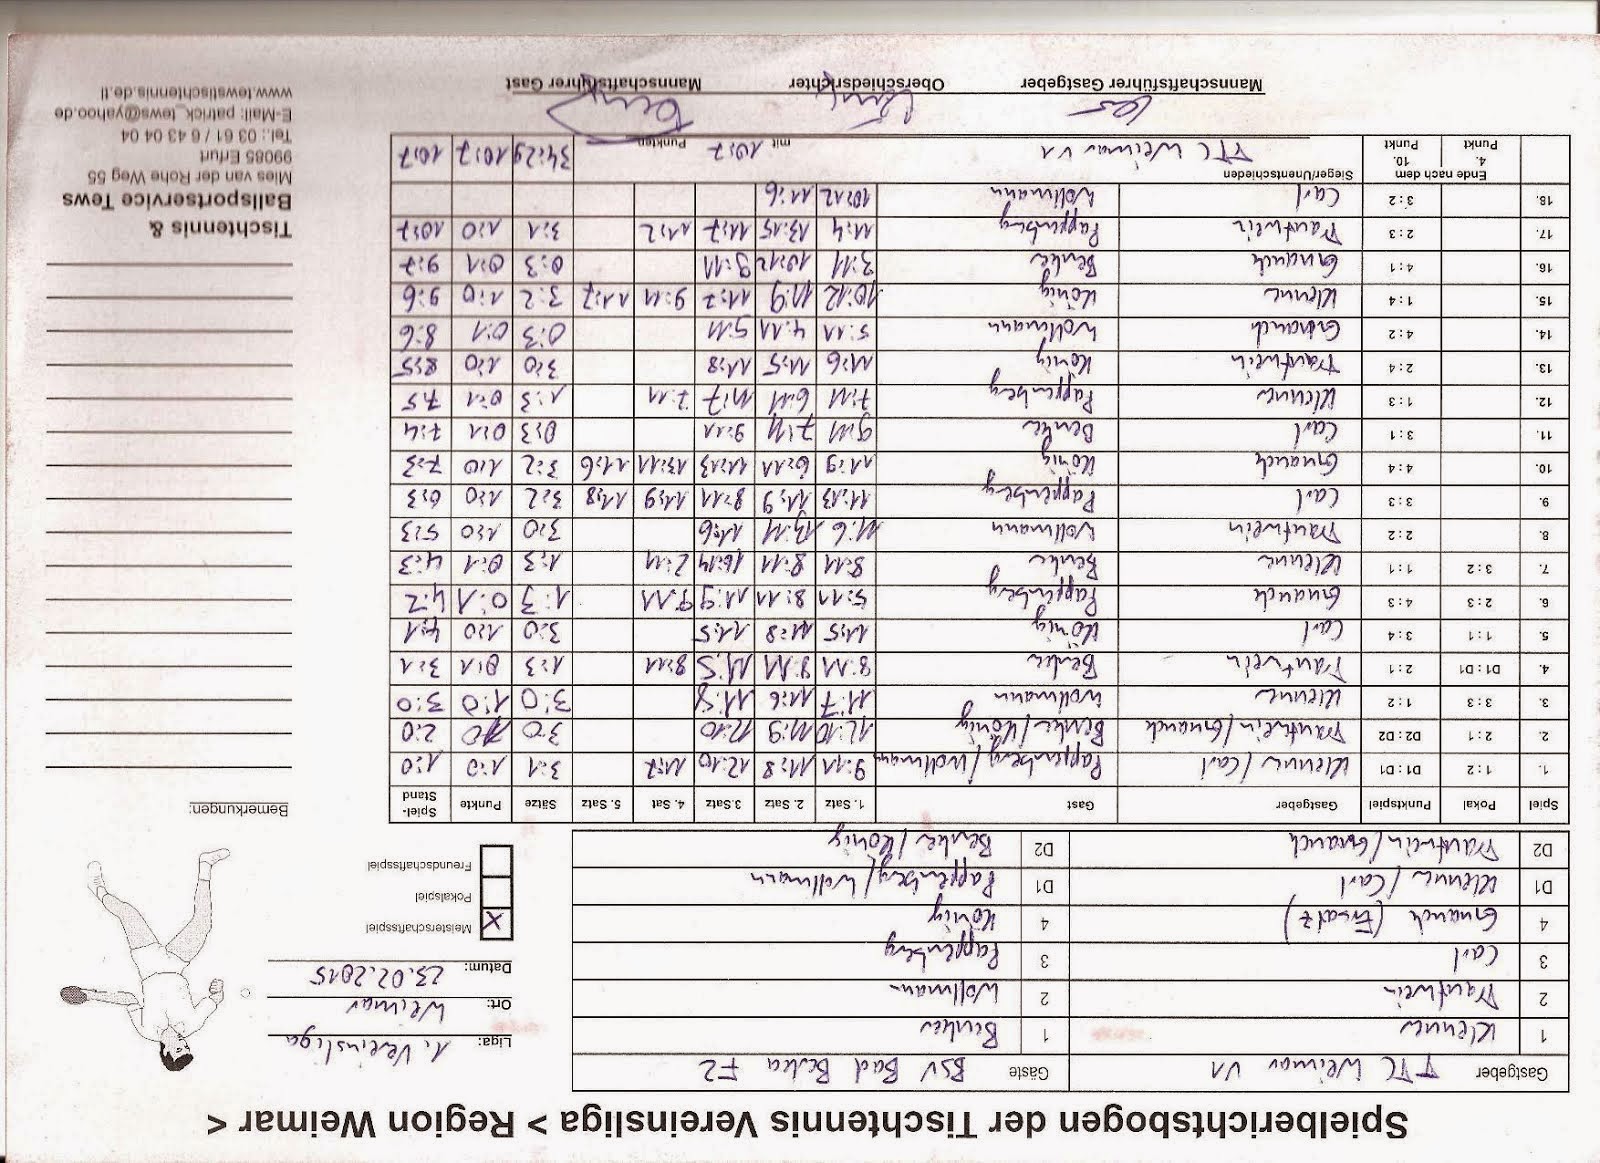 Spielberichtsbogen der Tischtennis Vereinsliga > Region Weimar <
Gastgeber TTC Weimar V1 Gäste BSV Bad Berka F2
1 Klenner 1 Benker
2 Trautwein 2 Wollmann
3 Carl 3 Pappenberg
4 Gnauck (Ersatz) 4 König
D1 Klenner / Carl D1 Pappenberg / Wollmann
D2 Trautwein / Gnauck D2 Benker / König
Liga: 1. Vereinsliga
Ort: Weimar
Datum: 23.02.2015
X Meisterschaftsspiel
Pokalspiel
Freundschaftsspiel
Bemerkungen:
Spiel Pokal Punktspiel Gastgeber Gast 1. Satz 2. Satz 3.Satz 4. Sat 5. Satz Sätze Punkte Spiel-Stand
1. 1 : 2 D1 : D1 Klenner / Carl Pappenberg / Wollmann 9:11 11:8 12:10 11:7 3:1 1:0 1:0
2. 2 : 1 D2 : D2 Trautwein / Gnauck Benker / König 12:10 11:9 12:10 3:0 1:0 2:0
3. 3 : 3 1 : 2 Klenner Wollmann 11:7 11:6 11:8 3:0 1:0 3:0
4. D1 : D1 2 : 1 Trautwein Benker 8:11 9:11 11:5 8:11 1:3 0:1 3:1
5. 1 : 1 3 : 4 Carl König 11:5 11:8 11:5 3:0 1:0 4:1
6. 2 : 3 4 : 3 Gnauck Pappenberg 5:11 8:11 11:9 9:11 1:3 0:1 4:2
7. 3 : 2 1 : 1 Klenner Benker 8:11 8:11 16:14 2:11 1:3 0:1 4:3
8. 2 : 2 Trautwein Wollmann 11:6 13:11 11:6 3:0 1:0 5:3
9. 3 : 3 Carl Pappenberg 11:13 11:9 8:11 11:9 11:8 3:2 1:0 6:3
10. 4 : 4 Gnauck König 11:9 6:11 11:13 13:11 11:6 3:2 1:0 7:3
11. 3 : 1 Carl Benker 9:11 7:11 9:11 0:3 0:1 7:4
12. 1 : 3 Klenner Pappenberg 7:11 6:11 11:7 7:11 1:3 0:1 7:5
13. 2 : 4 Trautwein König 11:6 11:5 11:8 3:0 1:0 8:5
14. 4 : 2 Gnauck Wollmann 5:11 4:11 5:11 0:3 0:1 8:6
15. 1 : 4 Klenner König 10:12 11:9 11:7 9:11 11:7 3:2 1:0 9:6
16. 4 : 1 Gnauck Benker 3:11 10:12 9:11 0:3 0:1 9:7
17. 2 : 3 Trautwein Pappenberg 11:4 13:15 11:7 11:2 3:1 1:0 10:7
18. 3 : 2 Carl Wollmann 10:12 11:6
Ende nach dem 4. Punkt 10. Punkt Sieger/Unentschieden TTC Weimar V1 mit 10:7 Punkten 34:29 10:7 10:7
Mannschaftsführer Gastgeber Oberschiedsrichter Mannschaftsführer Gast
Tischtennis &
Ballsportservice Tews
Mies van der Rohe Weg 55
99085 Erfurt
Tel.: 03 61 / 6 43 04 04
E-Mail: patrick_tews@yahoo.de
www.tewstischtennis.de.tl